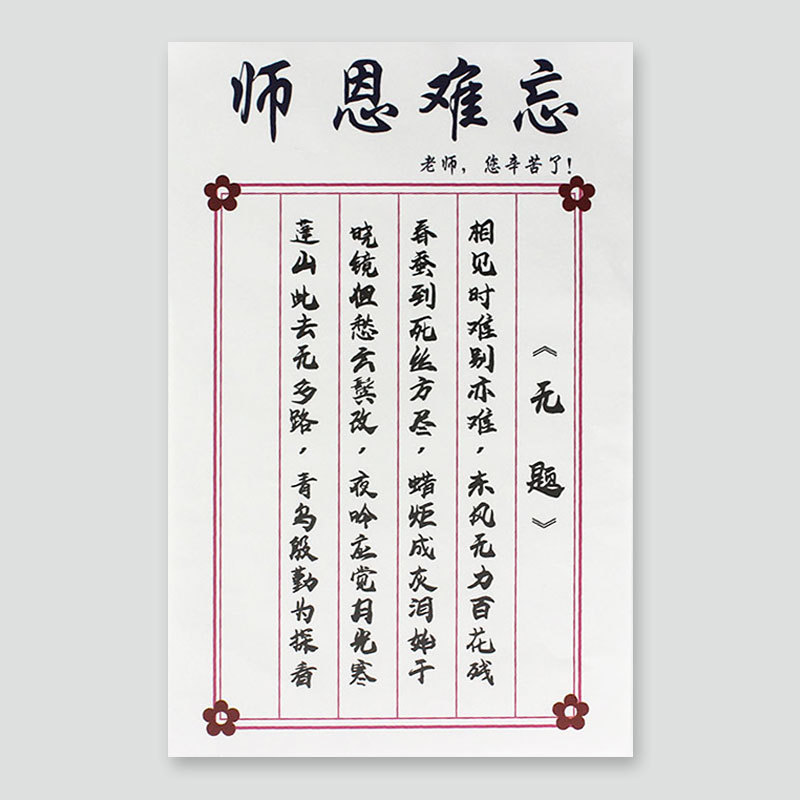 师恩难忘
老师，您辛苦了!
《无题》
相见时难别亦难，东风无力百花残
春蚕到死丝方尽，蜡炬成灰泪始干
晓镜但愁云鬓改，夜吟应觉月光寒
蓬山此去无多路，青鸟殷勤为探看